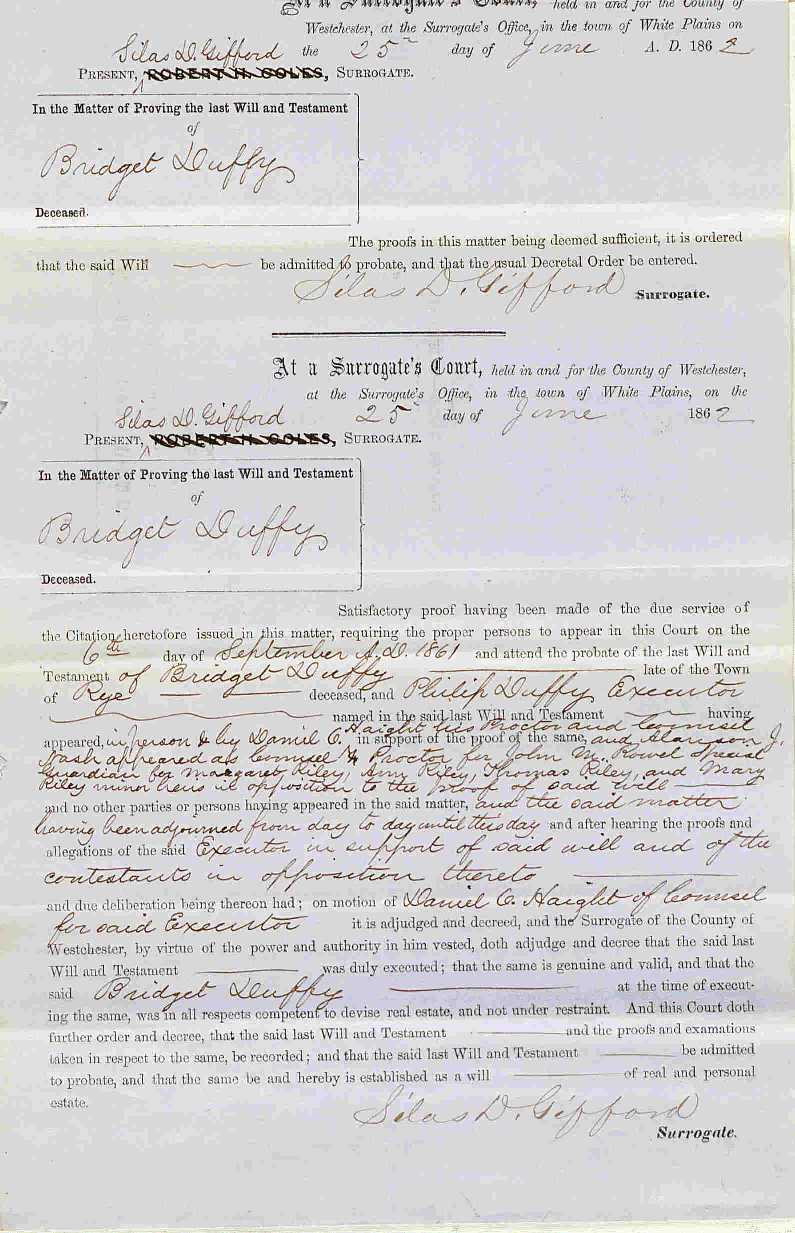 At a Surrogate's Court, held in and for the County of
Westchester, at the Surrogate's Office, in the town of White Plains on
Silas D. Gifford the 25th day of June A. D. 1862
PRESENT, ROBERT H. COLES, SURROGATE.
In the Matter of Proving the last Will and Testament
of
Bridget Duffy
Deceased.
The proofs in this matter being deemed sufficient, it is ordered
that the said Will be admitted to probate, and that the usual Decretal Order be entered.
Silas D. Gifford Surrogate.
At a Surrogate's Court, held in and for the County of Westchester,
at the Surrogate's Office, in the town of White Plains, on the
Silas D. Gifford 25th day of June 1862
PRESENT, ROBERT H. COLES, SURROGATE.
In the Matter of Proving the last Will and Testament
of
Bridget Duffy
Deceased.
Satisfactory proof having been made of the due service of
the Citation heretofore issued in this matter, requiring the proper persons to appear in this Court on the
6th day of September A.D. 1861 and attend the probate of the last Will and
Testament of Bridget Duffy late of the Town
of Rye deceased, and Philip Duffy Executor
named in the said last Will and Testament having
appeared, in person & by Daniel C. Haight his Proctor and Counsel
in support of the proof of the same, and Alanson J.
Nash appeared as Counsel & Proctor for John M. Rowel Special
Guardian for Margaret Riley, Ann Riley, Thomas Riley, and Mary
Riley minor heirs in opposition to the proof of said will
and no other parties or persons having appeared in the said matter, and the said matter
having been adjourned from day to day until this day and after hearing the proofs and
allegations of the said Executor in support of said will and of the
contestants in opposition thereto
and due deliberation being thereon had; on motion of Daniel C. Haight of Counsel
for said Executor it is adjudged and decreed, and the Surrogate of the County of
Westchester, by virtue of the power and authority in him vested, doth adjudge and decree that the said last
Will and Testament was duly executed; that the same is genuine and valid, and that the
said Bridget Duffy at the time of execut-
ing the same, was in all respects competent to devise real estate, and not under restraint. And this Court doth
further order and decree, that the said last Will and Testament and the proofs and examations
taken in respect to the same, be recorded; and that the said last Will and Testament be admitted
to probate, and that the same be and hereby is established as a will of real and personal
estate.
Silas D. Gifford
Surrogate.